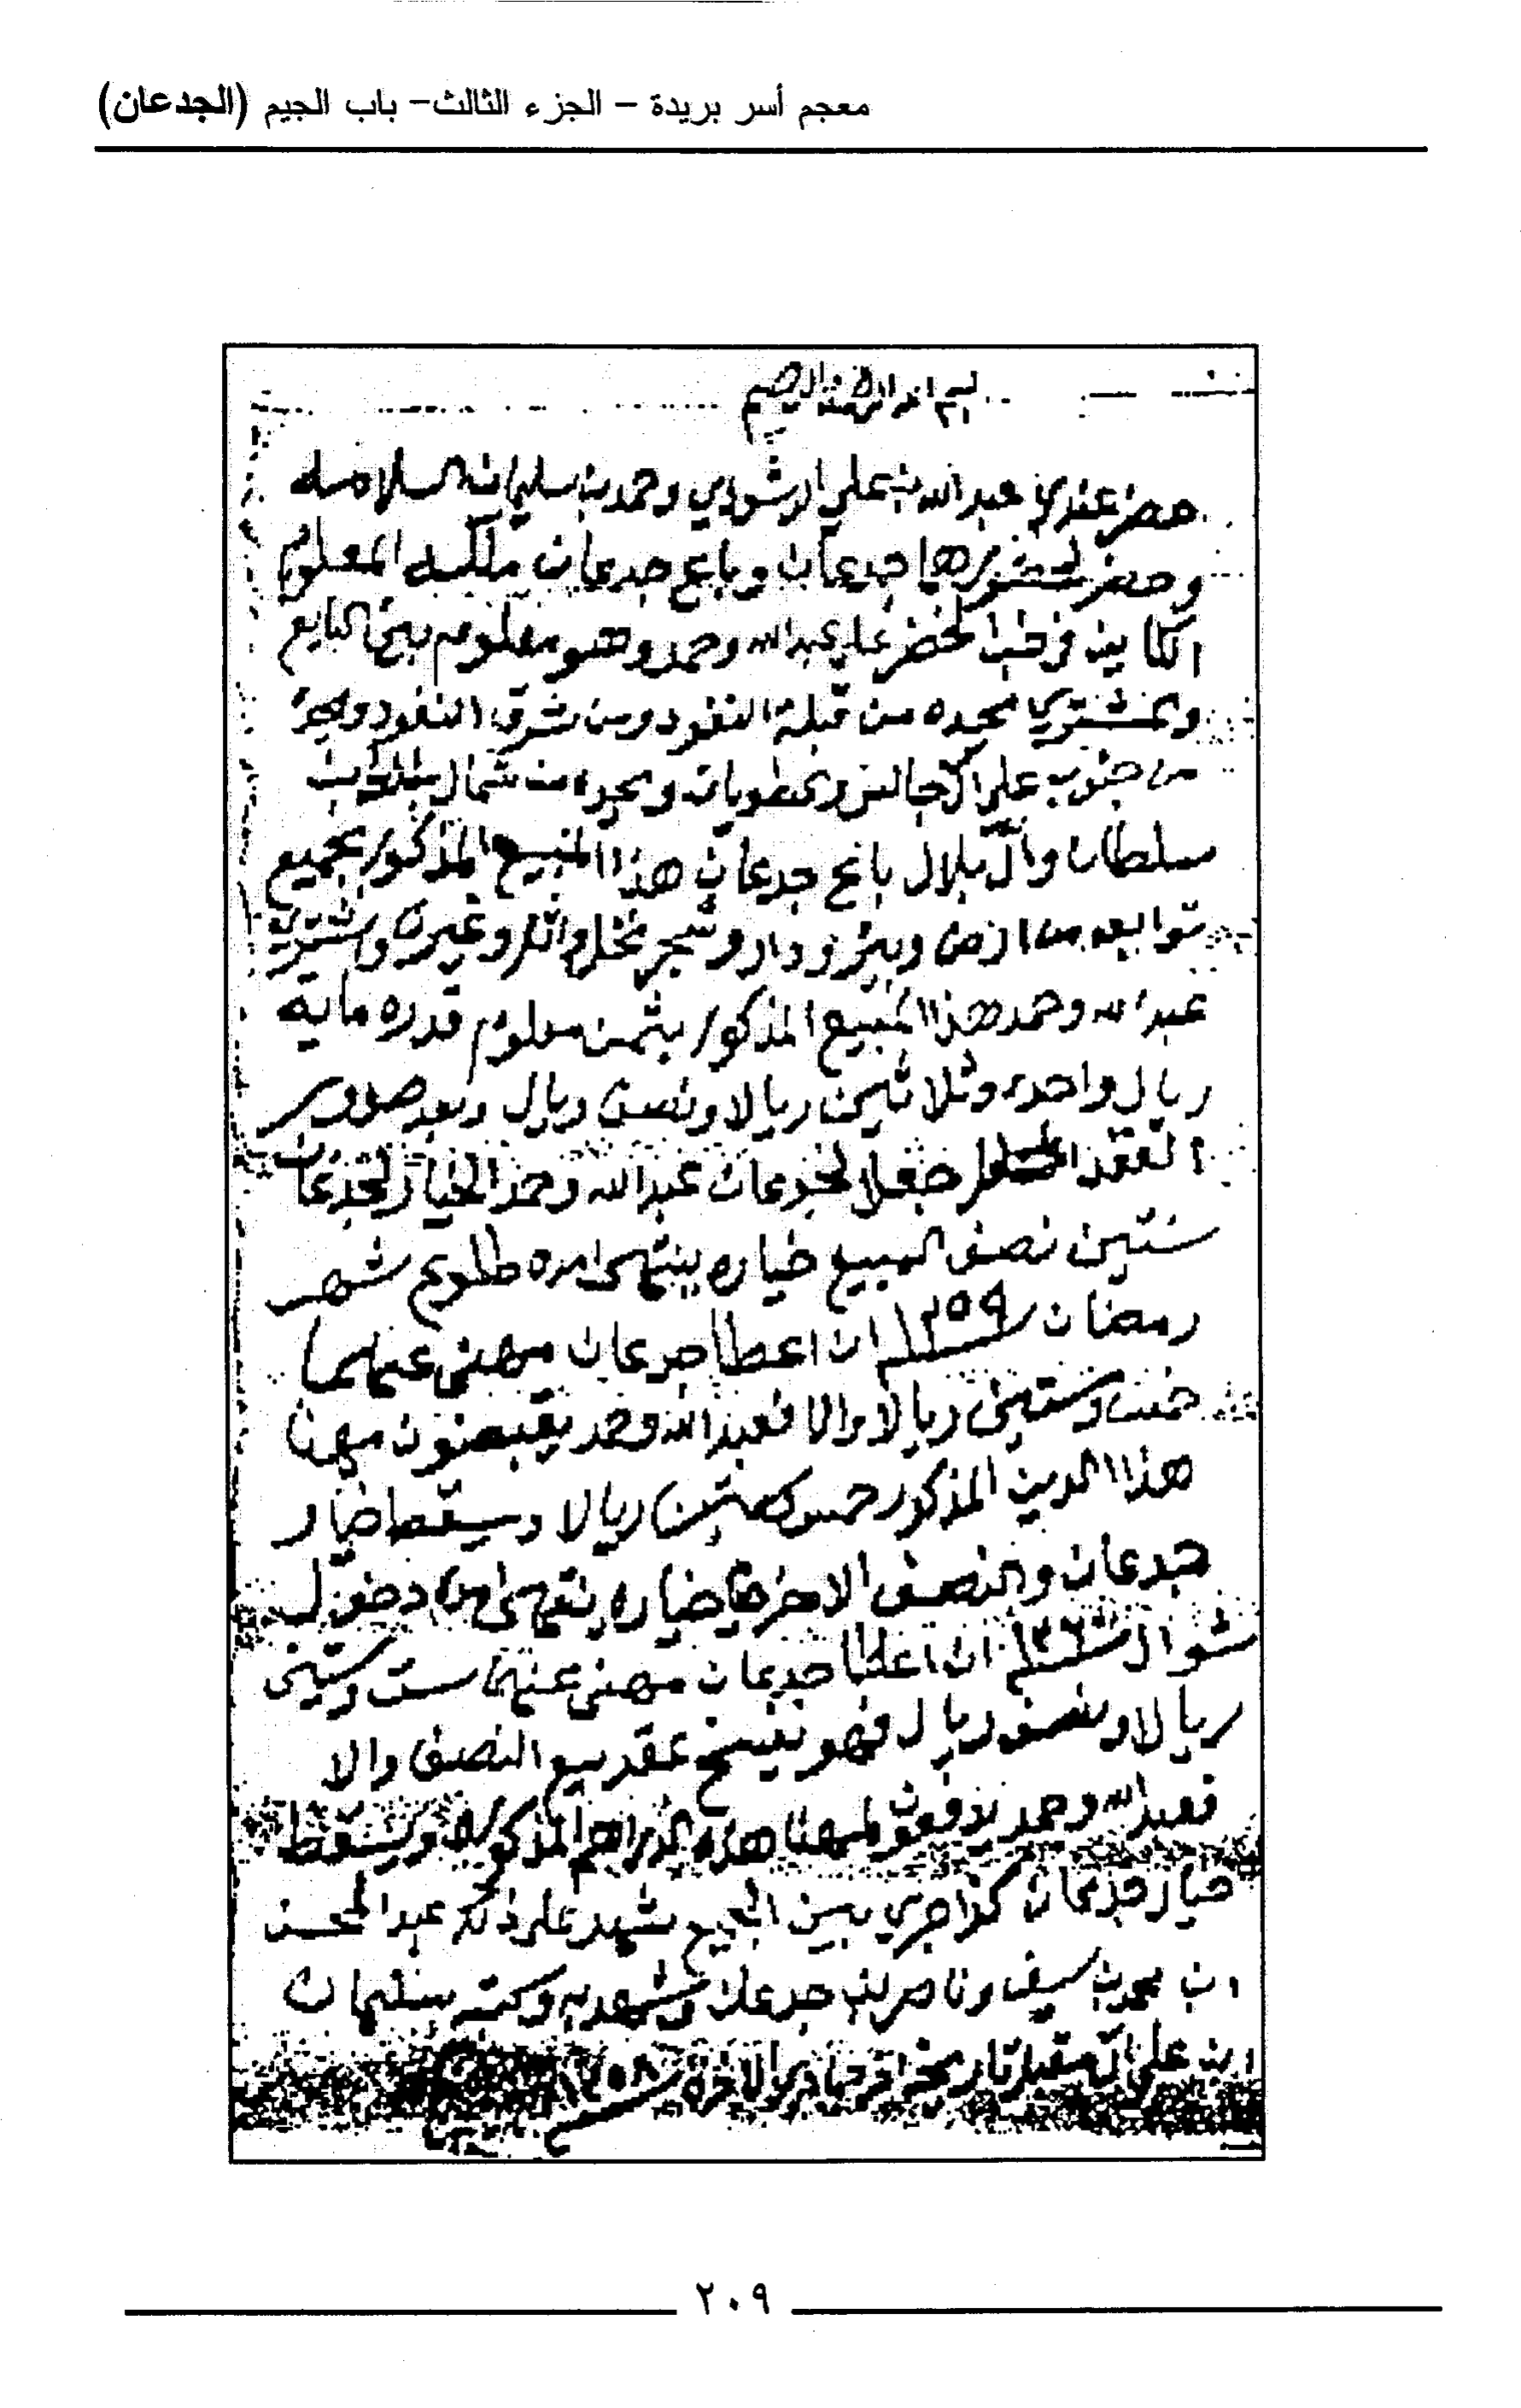 معجم أسر بريدة – الجزء الثالث – باب الجيم (الجدعان)
بسم الله الرحمن الرحيم
حضر عندي عبدالله بن علي الرشودي وحمد بن سليمان السلامه
وحضر لحضورهما جدعان وباع جدعان ملكه المعلوم
الكاين في خب الخضر على عبدالله وحمد وهو معلوم بين البايع
والمشتري يحده من قبلة النفود ومن شرق النفود ويحده
من جنوب على الجالس ويحده من شمال
سلطان وآل بلال باع جدعان هذا المبيع المذكور بجميع
توابعه من ارض وبير ودار وشجر نخل واثل وغيره واشترى
عبدالله وحمد هذا المبيع المذكور بثمن معلوم قدره ماية
ريال واحده وثلاثين ريالا ونصف ريال وبعد صدور
العقد جعل لجدعان عبدالله وحمد الخيار لجدعان
سنتين نصف المبيع خياره ينتهي امده طلوع شهر
رمضان سنة ١٢٥٩ ان اعطا جدعان مهنى عنهما
خمس وستين ريالا والا فعبدالله وحمد يقبضون مهنا
هذا الدين المذكور خمس وستين ريالا ويسقط خيار
جدعان والنصف الاخر خياره ينتهي امده دخول
شوال سنة ١٢٦٠ ان اعطا جدعان مهنى عنهما ست وستين
ريالا ونصف ريال فهو ينفسخ عقد بيع النصف والا
فعبدالله وحمد يدفعون لمهنا هذه الدراهم المذكورة ويسقط
خيار جدعان كذا جرى بين الجميع شهد على ذلك عبدالمحسن
ابن محمد بن سيف وناصر بن جدعان وشهد به وكتبه سليمان
ابن علي آل مقبل تاريخه اخر جمادى الاخرة سنة ١٢٥٨
٢٠٩